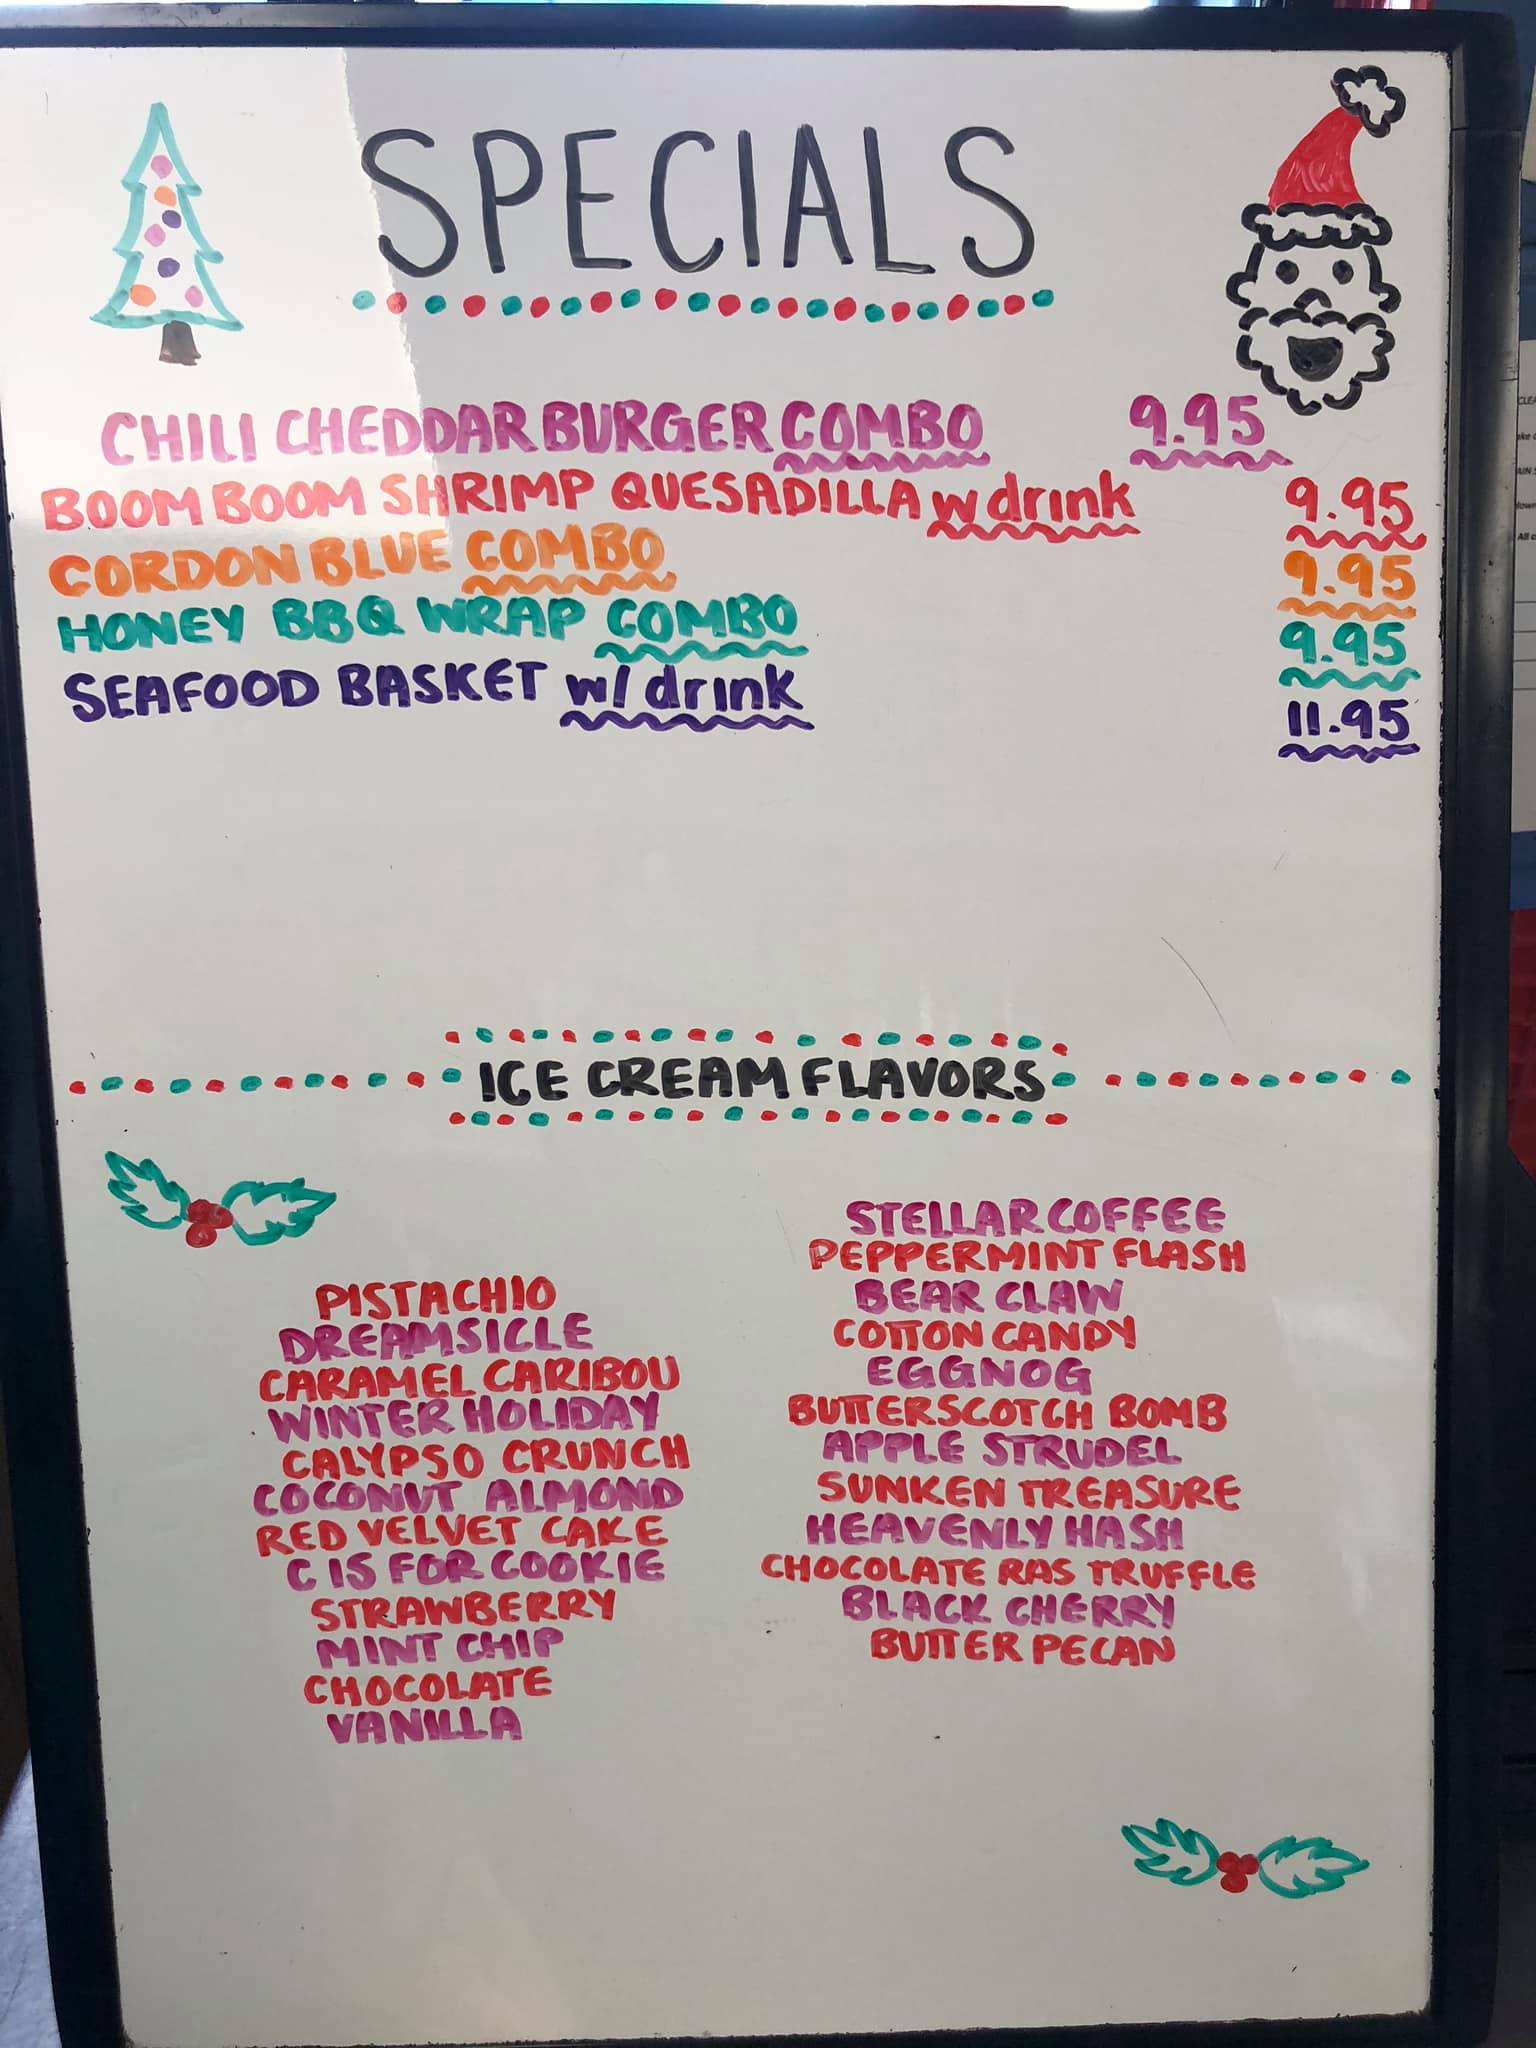 SPECIALS
CHILI CHEDDAR BURGER COMBO 9.95
BOOM BOOM SHRIMP QUESADILLA w drink 9.95
CORDON BLUE COMBO 9.95
HONEY BBQ WRAP COMBO 9.95
SEAFOOD BASKET w/ drink 11.95
ICE CREAM FLAVORS
PISTACHIO
DREAMSICLE
CARAMEL CARIBOU
WINTER HOLIDAY
CALYPSO CRUNCH
COCONUT ALMOND
RED VELVET CAKE
C IS FOR COOKIE
STRAWBERRY
MINT CHIP
CHOCOLATE
VANILLA
STELLAR COFFEE
PEPPERMINT FLASH
BEAR CLAW
COTTON CANDY
EGGNOG
BUTTERSCOTCH BOMB
APPLE STRUDEL
SUNKEN TREASURE
HEAVENLY HASH
CHOCOLATE RAS TRUFFLE
BLACK CHERRY
BUTTER PECAN